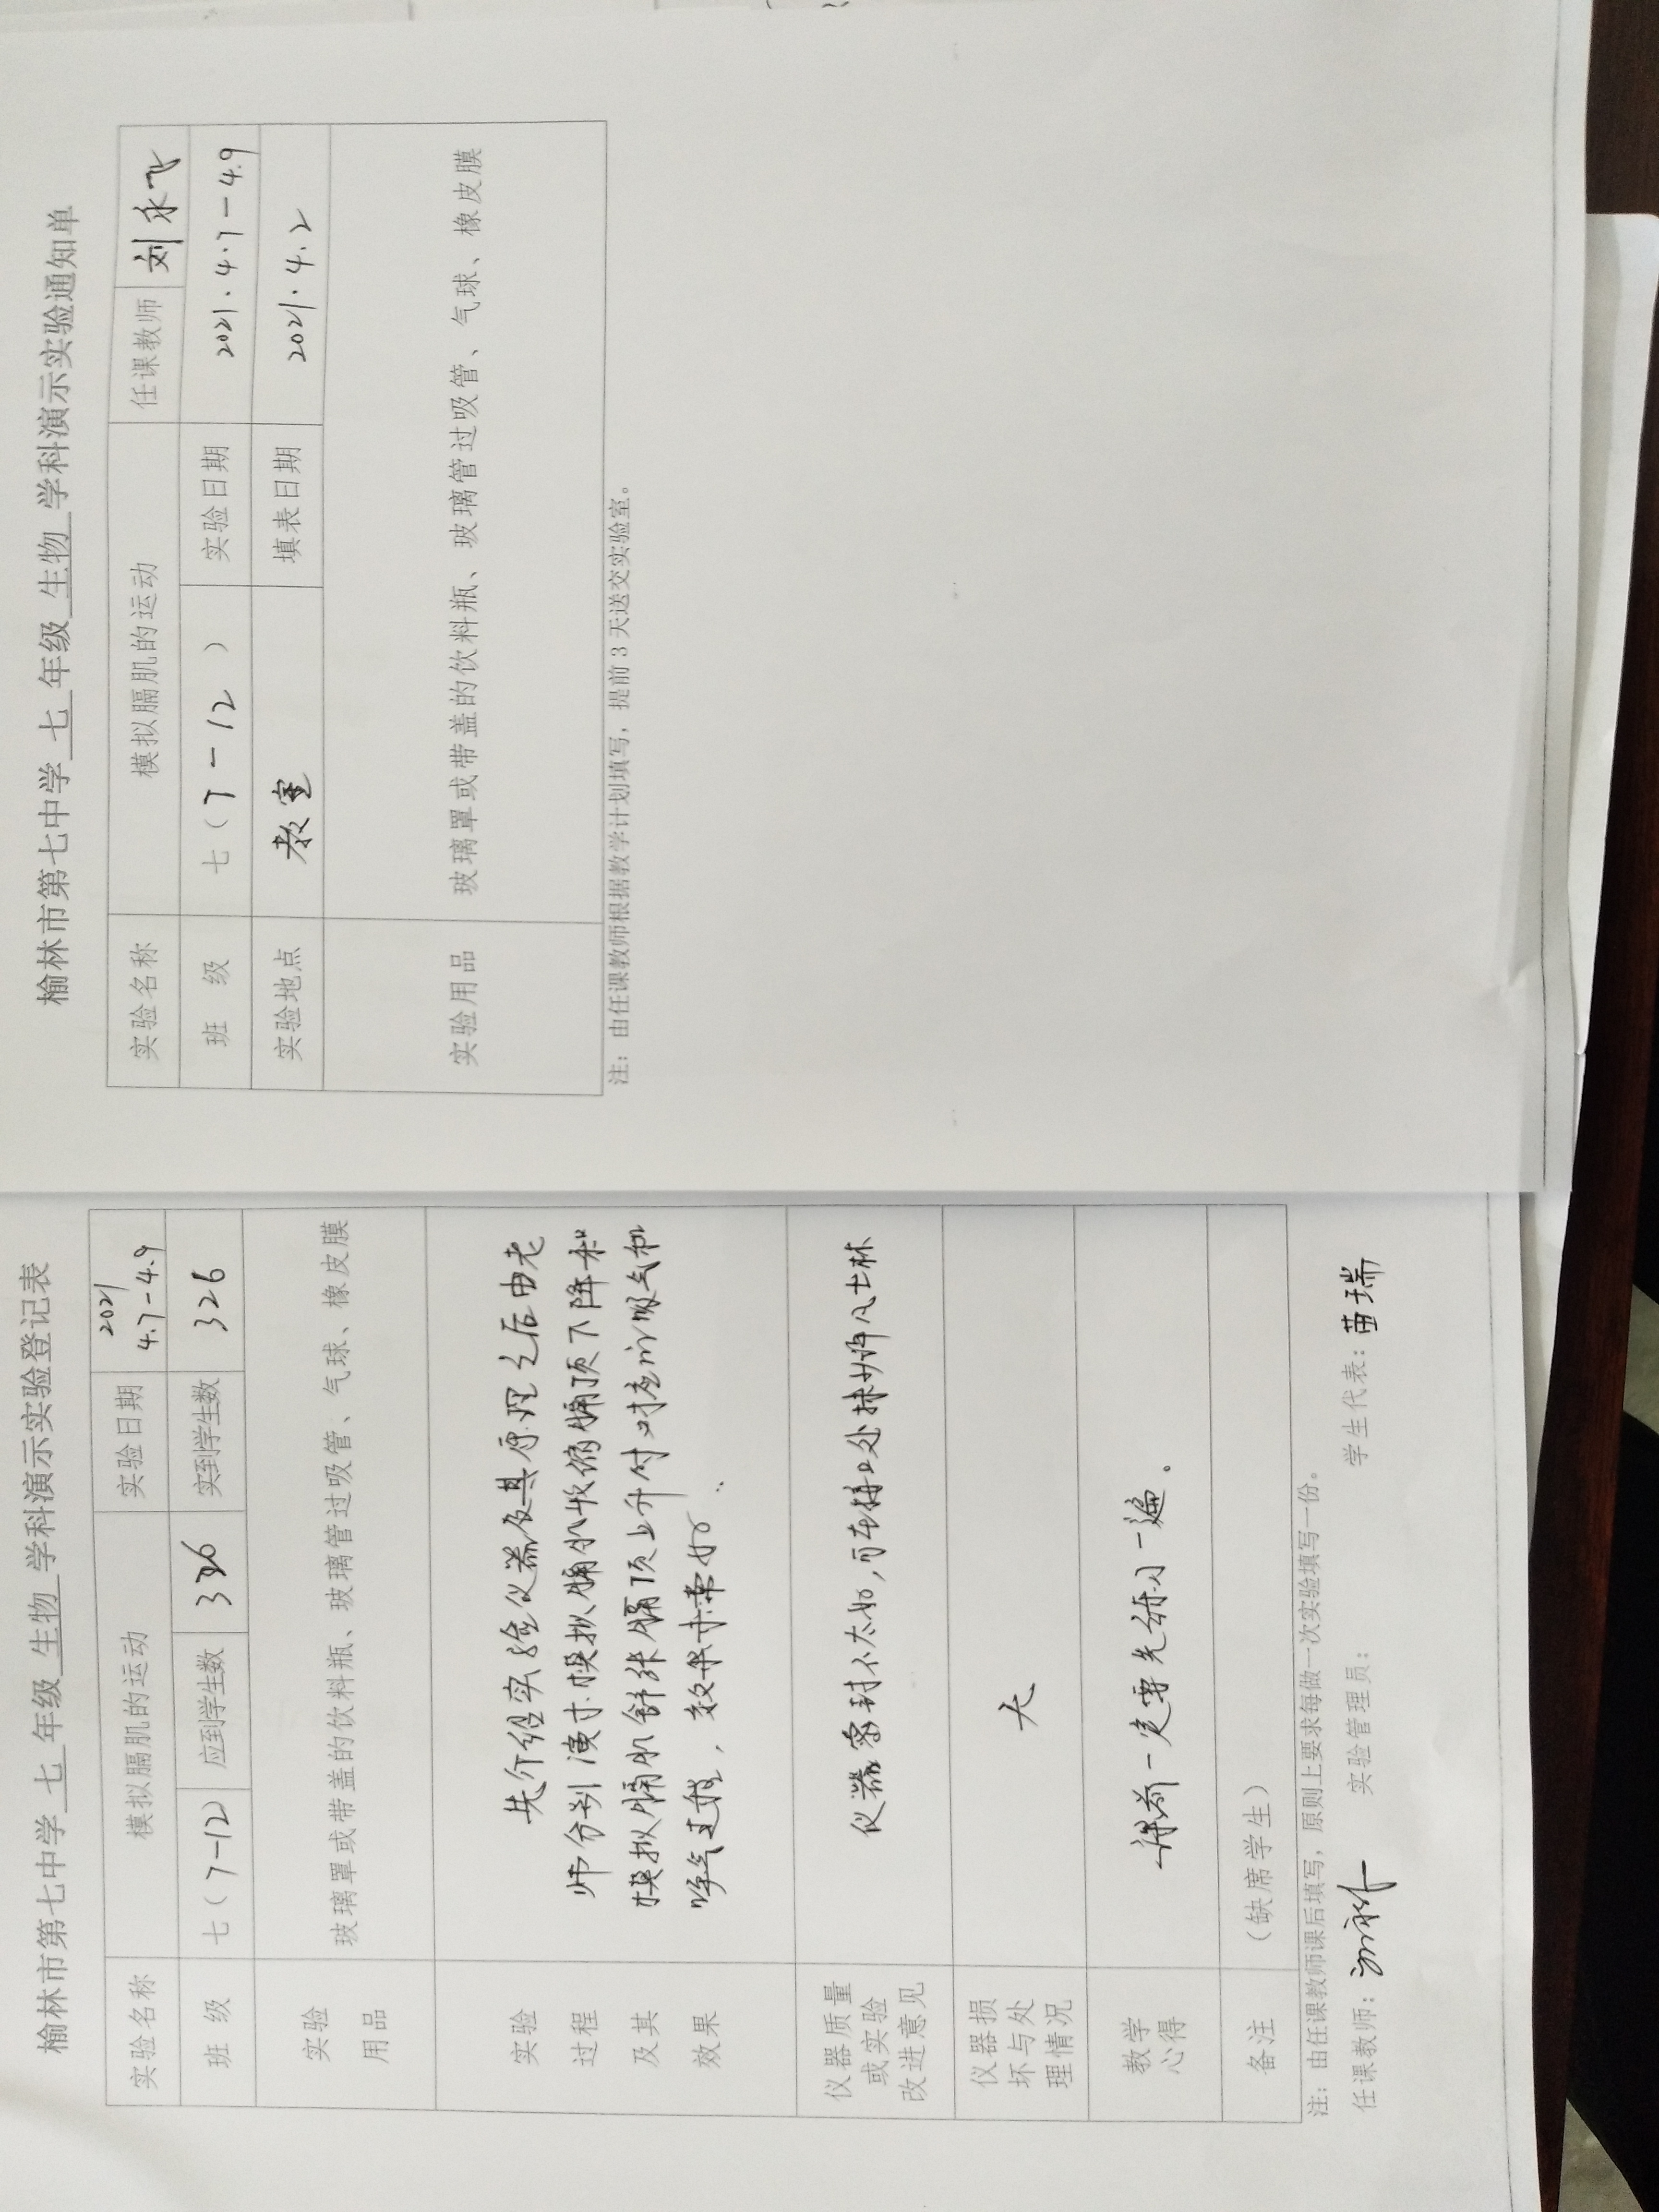 榆林市第七中学 七 年级 生物 学科演示实验登记表
实验名称 模拟膈肌的运动 实验日期 2021 4.7-4.9
班 级 七(7-12) 应到学生数 326 实到学生数 326
实验用品 玻璃罩或带盖的饮料瓶、玻璃管过吸管、气球、橡皮膜
实验过程及其效果
先介绍实验仪器及其原理之后由老
师分别演示模拟膈肌收缩膈顶下降和
模拟膈肌舒张膈顶上升时对应的吸气和
呼气过程，效果非常好
仪器质量或实验改进意见 仪器密封不太好，可在接口处抹些凡士林
仪器损坏与处理情况 无
教学心得 课前一定要先练习一遍。
备注 （缺席学生）
注：由任课教师课后填写，原则上要求每做一次实验填写一份。
任课教师： 实验管理员： 学生代表：苗瑞
榆林市第七中学 七 年级 生物 学科演示实验通知单
实验名称 模拟膈肌的运动 任课教师 刘永飞
班 级 七（7-12） 实验日期 2021.4.7-4.9
实验地点 教室 填表日期 2021.4.2
实验用品 玻璃罩或带盖的饮料瓶、玻璃管过吸管、气球、橡皮膜
注：由任课教师根据教学计划填写，提前3天送交实验室。